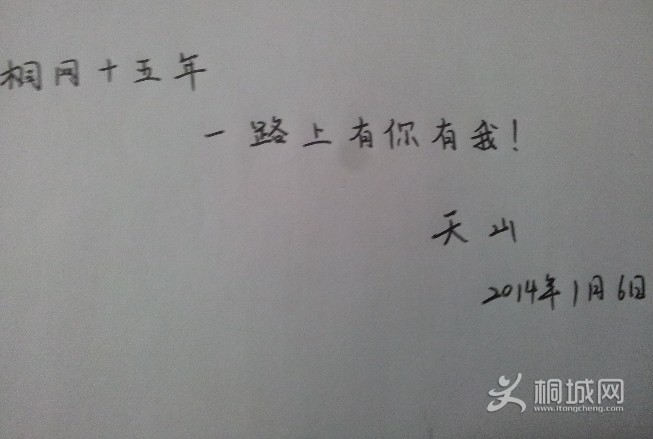 桐网十五年
一路上有你有我！
天山
2014年1月6日
桐城网
www.itongcheng.com